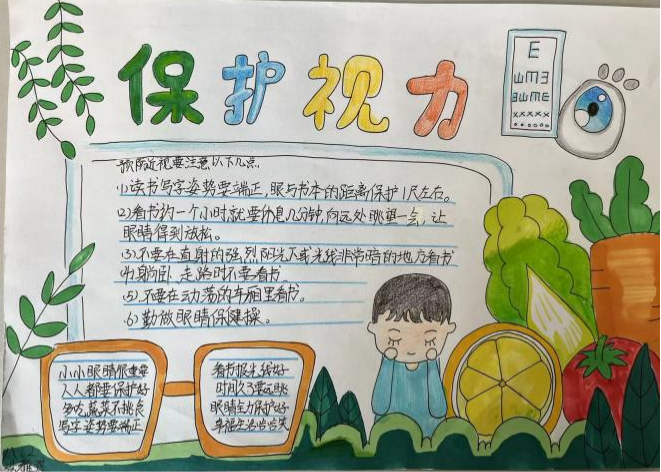 保护视力
E
ШMƎ
预防近视要注意以下几点
(1)读书写字姿势要端正,眼与书本的距离保护1尺左右。
(2)看书约一个小时就要休息几分钟,向远处眺望一会,让
眼睛得到放松。
(3)不要在直射的强烈阳光下或光线非常暗的地方看书
躺卧,走路时不要看书
(5).不要在动荡的车厢里看书。
(6)勤做眼睛保健操。
小小眼睛很重要
人人都要保护好
多吃蔬菜不挑食
写字姿势要端正
看书报光线好
时间久了要远眺
眼睛全力保护好
幸福生活哈哈笑